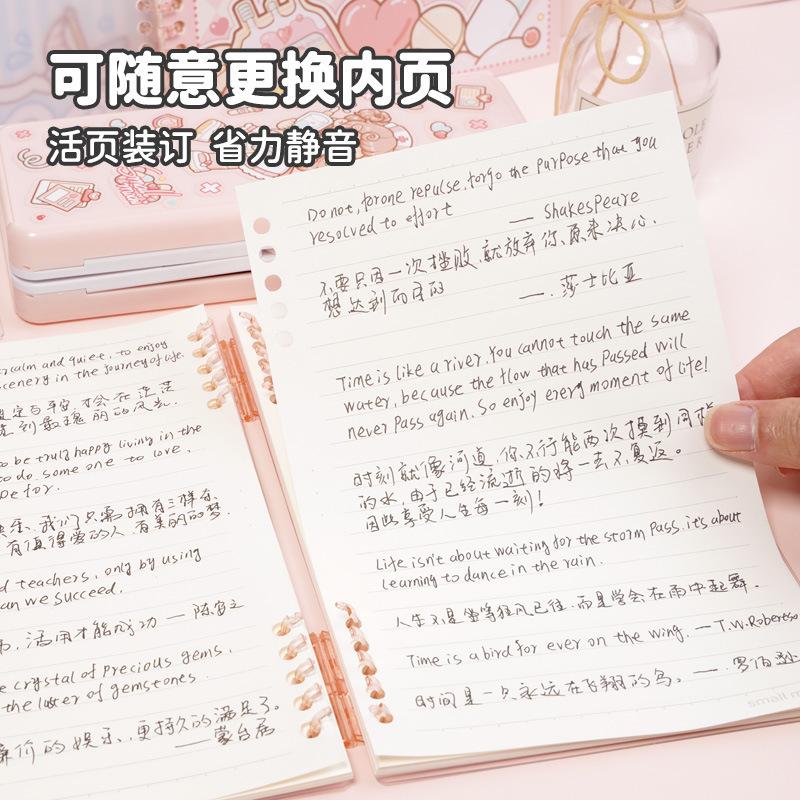 可随意更换内页
活页装订 省力静音
Do not, for one repulse, forgo the purpose that you
resolved to effort
— Shakespeare
不要只因一次挫败,就放弃你原来决心
想达到的目的
—.莎士比亚
Time is like a river. You cannot touch the same
water, because the flow that has passed will
never pass again. So enjoy every moment of life!
时刻就像河道,你不行能两次摸到同样
的水,由于已经流逝的将一去不复返。
因此享受人生每一刻!
Life isn't about waiting for the storm pass. it's about
learning to dance in the rain.
人生不是坐等狂风已往,而是学会在雨中起舞。
Time is a bird for ever on the wing. —T.W.Robertso
时间是一只永远在飞翔的鸟。—.罗伯逊
small
calm and quiet, to enjoy
scenery in the journey of life.
与平安,才会在
到最瑰丽的风光.
to be truly happy living in the
to do some one to love,
pe for.
快乐,我们只需拥有三样东
有值得爱的人,有美丽的梦
d teachers, only by using
can we succeed.
活用才能成功 — 陈
e crystal of precious gems,
the luster of gemstones
廉价的娱乐,更持久的满足了。
——蒙台居